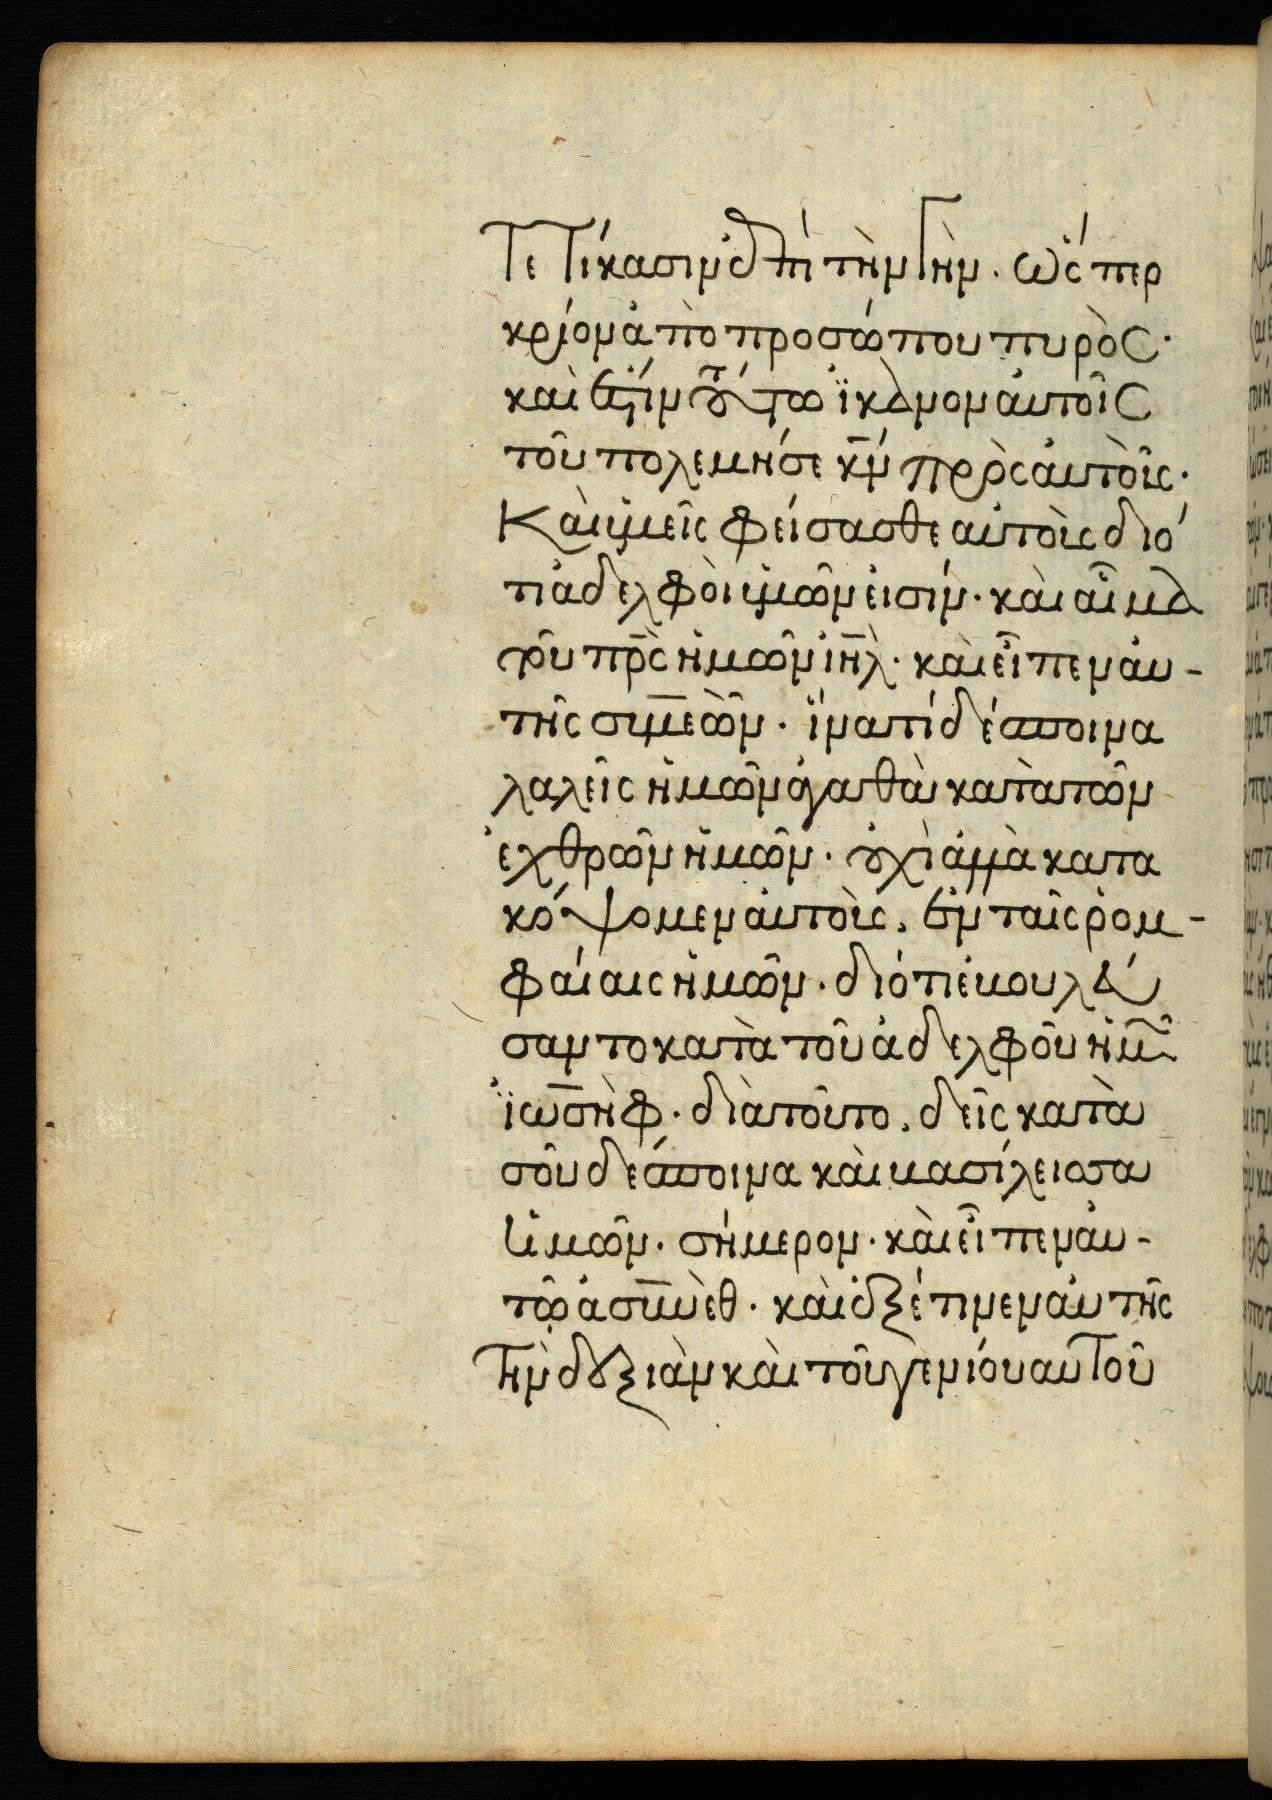 Τετίκασιν ἐπί τὴν γὴν. ὥσπερ
κρίον ἀπὸ προσώπου πυρὸς.
καὶ ἐστίν τοῦτω ϊκανον αὐτοῖς
τοῦ πολεμήσε κν πρὸς αὐτοὶς.
Καὶ ὑμεῖς φείσασθε αὐτοὶς διό
τι ἀδελφοὶ ὑμῶν εἰσίν. καὶ αἷμα
τοῦ πρς ἡμῶν ἰηλ. καὶ εἶπεν αὐ-
τῆς συμεὼν. ἵνα τί δέσποινα
λαλεῖς ἡμῶν ἀγαθὰ κατὰ τῶν
ἐχθρῶν ἡμῶν. οὐχὶ ἀλλὰ κατα
κόψομεν αὐτοὶς, ἐν ταῖς ῥομ-
φαίαις ἡμῶν. διότι ἐβουλεύ
σαντο κατὰ τοῦ ἀδελφοῦ ἡμῶν
ϊωσὴφ. διὰ τοῦτο, δεῖς κατὰ
σοῦ δέσποινα καὶ βασίλειοσα
ἡμῶν. σήμερον. καὶ εἶπεν αὐ-
τῶ ἀσυνὲθ. καὶ ἐξέτινεν αὐτῆς
Τὴν δεξιὰν καὶ τοῦ γενίου αυτοῦ